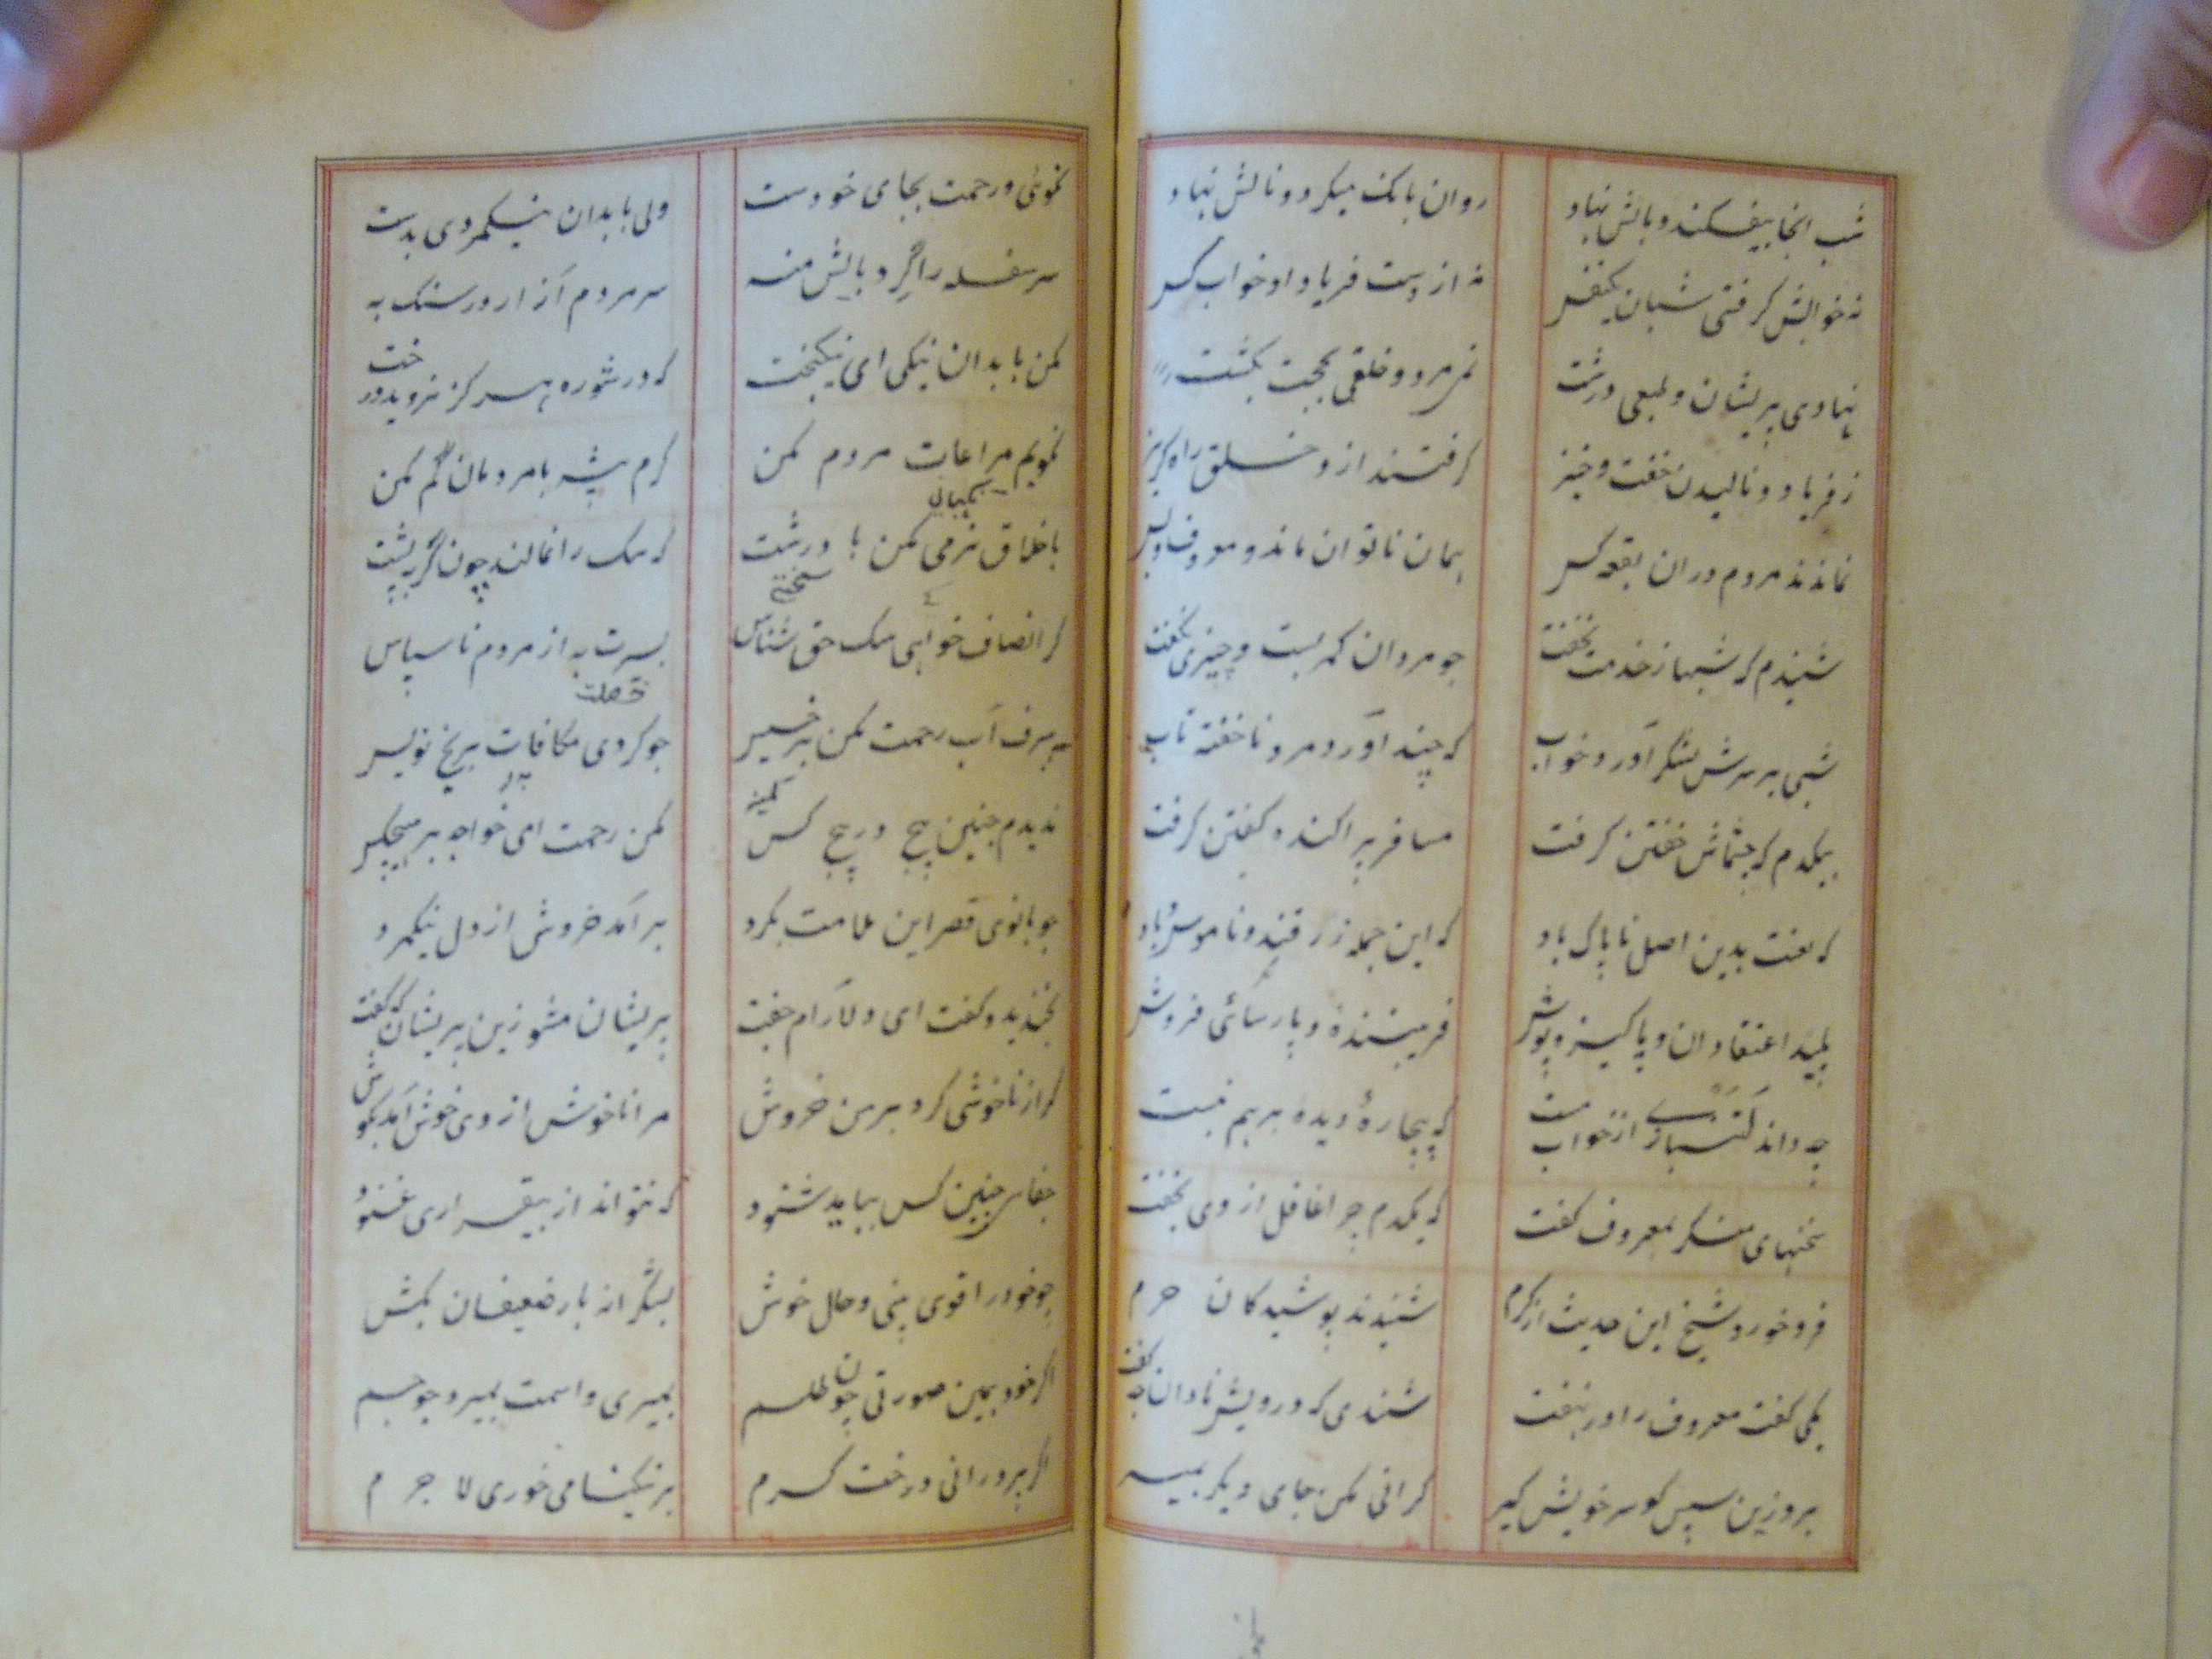 شب انجا بیفکند و بالش نهاد روان بانک میکرد و نالش نهاد
نه خوابش کرفتی شبان یکنفس نه از دست فریاد او خواب کس
نهادی پریشان و طبعی درشت نمی مرد و خلقی بحجت بکشت
ز فریاد و نالیدن خفت و خیز کرفتند ازو خلق راه کریز
نماندند مردم دران بقعه کس همان ناتوان ماند و معروف و بس
شنیدم که شبها ز خدمت نخفت چو مردان کمر بست و چیزی نکفت
شبی بر سرش لشکر آورد خواب که چند آورد مرد ناخفته تاب
بیکدم که چشمانش خفتن کرفت مسافر پراکنده کفتن کرفت
که لعنت بدین اصل ناپاک باد که این جمله زرقند و ناموس و باد
پلید اعتقادان و پاکیزه پوش فریبنده و پارسائی فروش
چه داند از خواب مست که بیچارهٔ دیده بر هم نبست
سخنهای منکر بمعروف کفت که یکدم چرا غافل از وی بخفت
فرو خورد شیخ این حدیث از کرم شنیدند پوشیدکان حرم
یکی کفت معروف را در نهفت شنیدی که درویش نادان چه کفت
برو زین سپس کو سر خویش کیر کرانی مکن جای دیکر بمیر
نکوئی و رحمت بجای خودست ولی با بدان نیکمردی بدست
سر سفله را کرد بالش منه سر مردم آزار در سنک به
مکن با بدان نیکی ای نیکبخت که در شوره هر کز نروید درخت
نکویم مراعات مردم مکن کرم پیشه با مردمان کم مکن
باخلاق نرمی مکن با درشت که سک را نمالند چون کربه پشت
کر انصاف خواهی سک حق شناس بسیرت به از مردم ناسپاس
خصلت
ببرف آب رحمت مکن بر خسیس چو کردی مکافات بر یخ نویس
ندیدم چنین پیچ در پیچ کس مکن رحمت ای خواجه بر هیچکس
چو بانوی قصر این ملامت بکرد بر آمد خروش از دل نیکمرد
بخندید و کفت ای دلارام جفت پریشان مشو زین پریشان که کفت
کر از ناخوشی کرد بر من خروش مرا ناخوش از وی خوش آمد بکوش
جفای چنین کس بباید شنود که نتواند از بیقراری غنود
چو خود را قوی بینی و حال خوش بشکرانه بار ضعیفان بکش
اکر خود همین صورتی چون طلسم بمیری و اسمت بمیرد چو جسم
اکر پرورانی درخت کرم بر نیکنامی خوری لا جرم